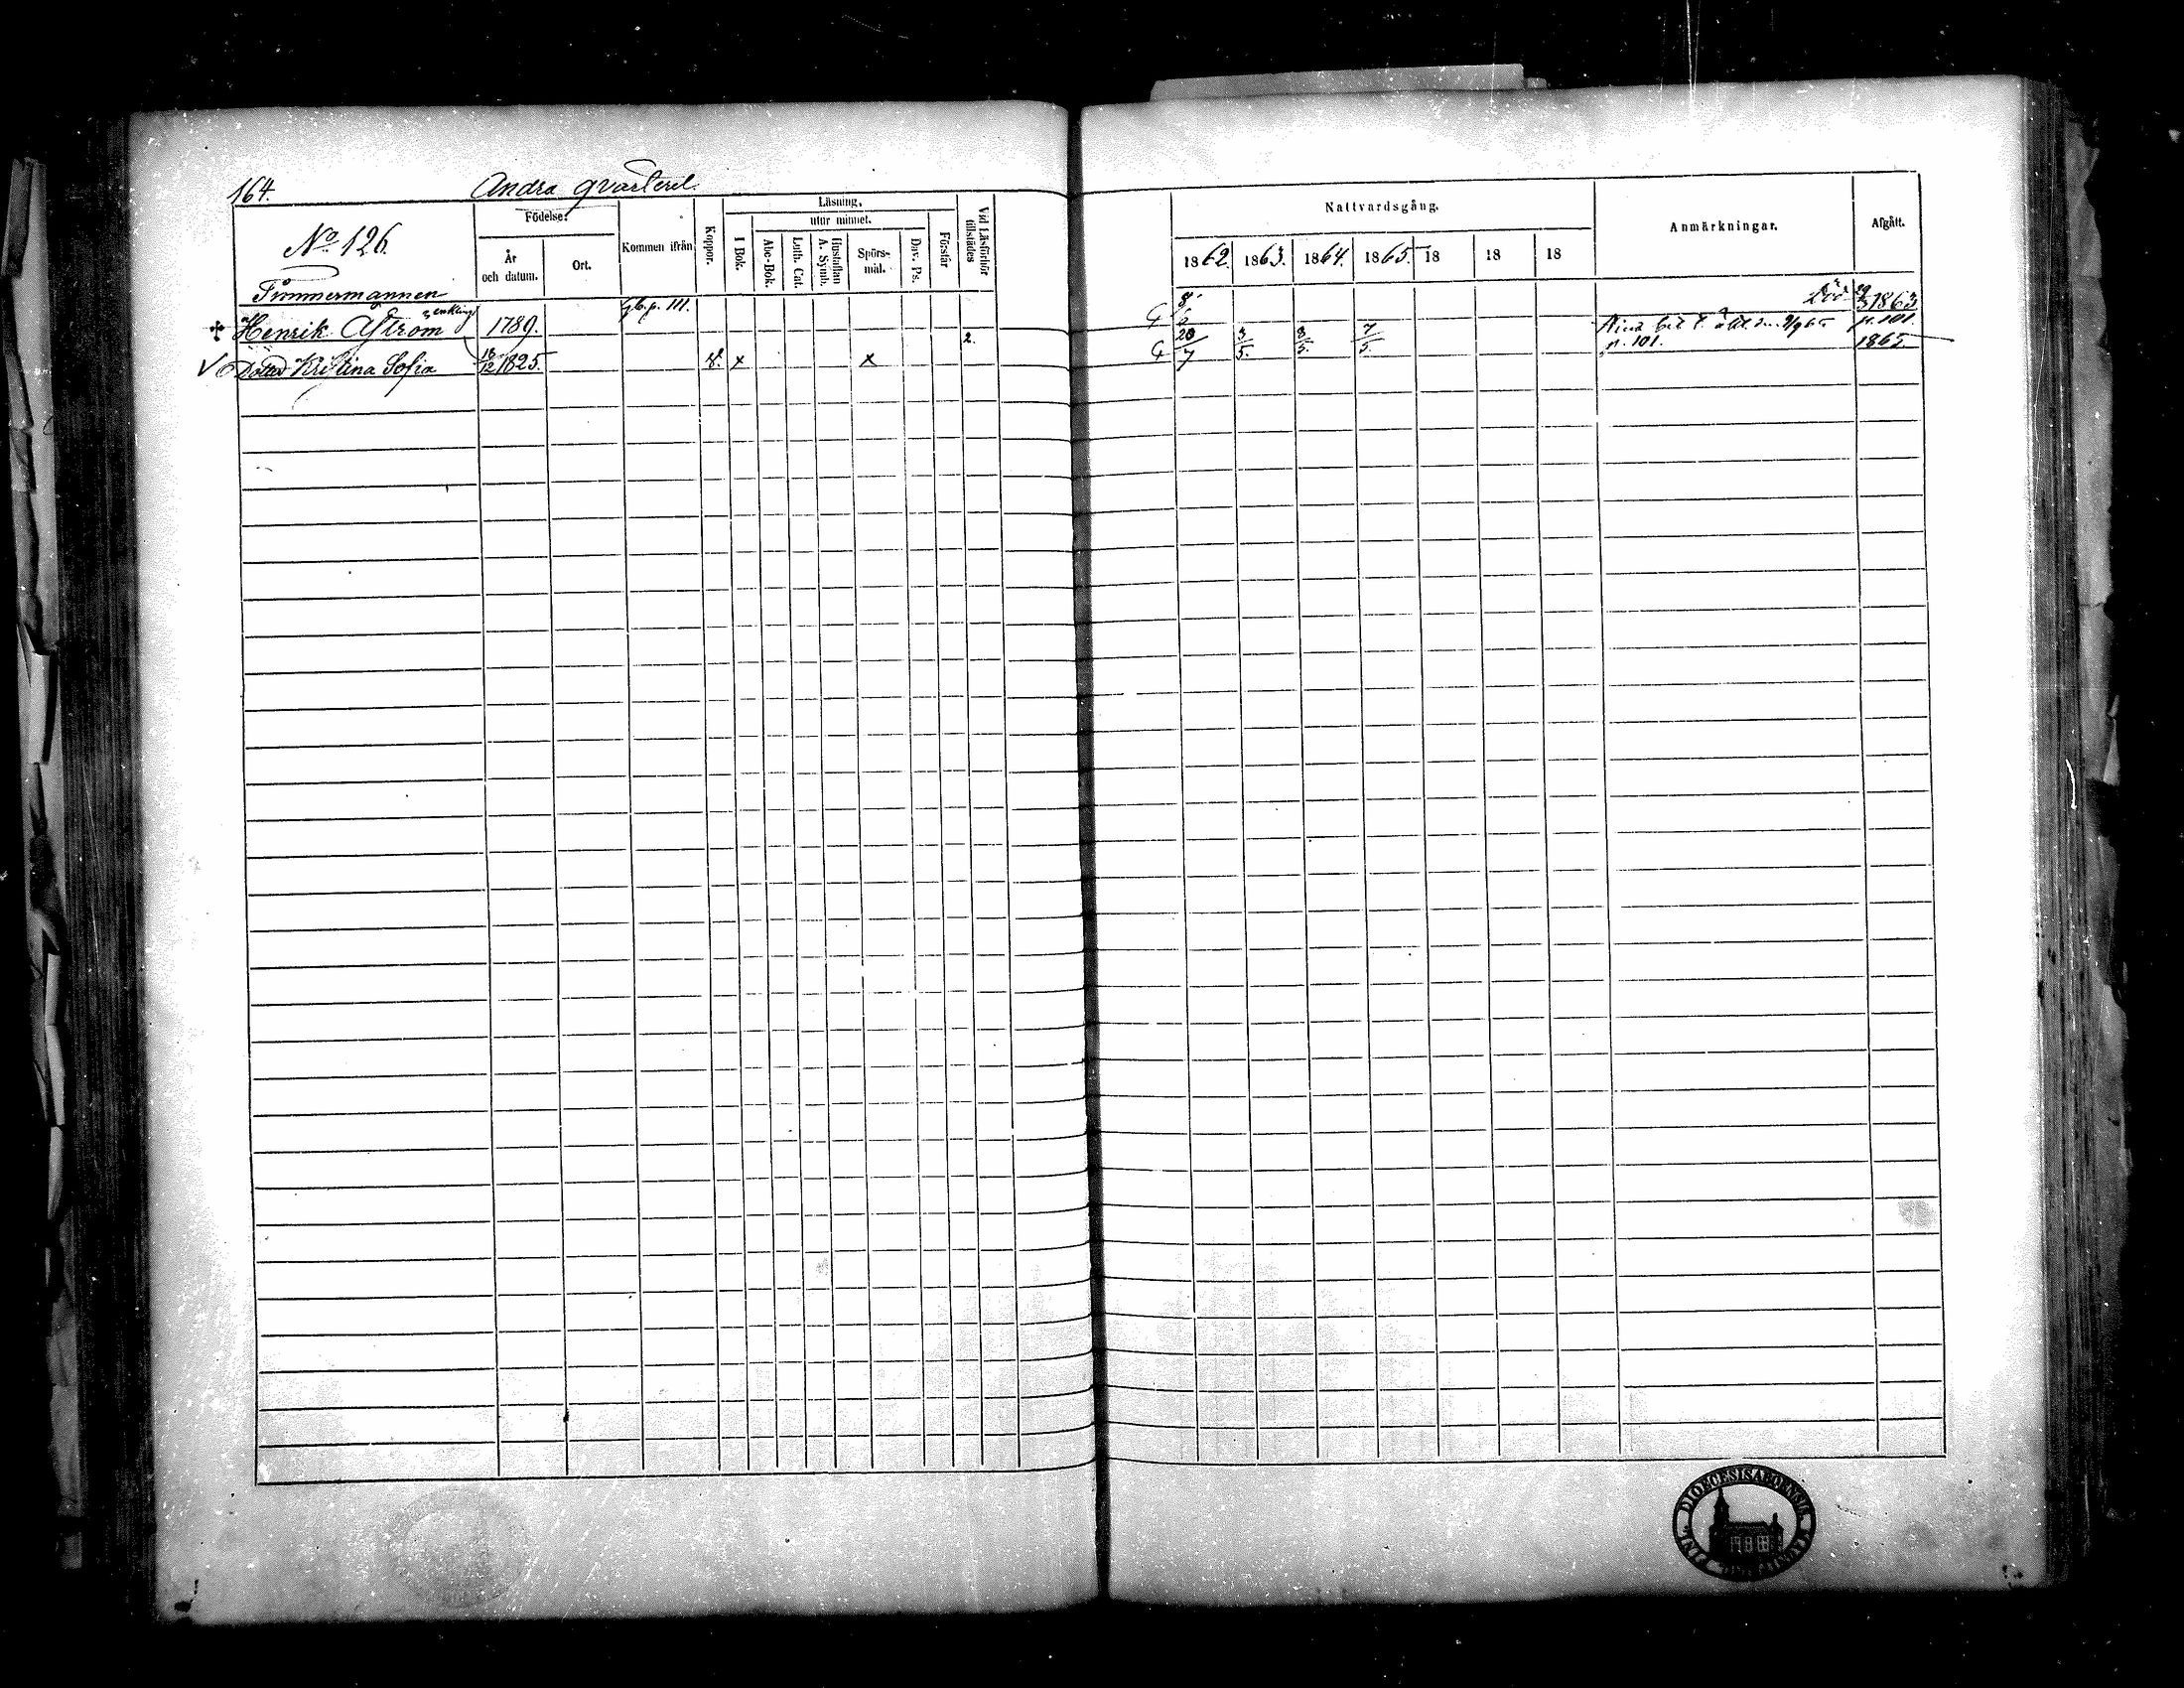 164. Andra qvarteret
No 126.
Födelse:
År
och datum.
Ort.
Kommen ifrån
Koppor.
Läsning,
I Bok.
utur minnet.
Abc-Bok.
Luth. Cat.
Hustaflan
A. Symb.
Spörs-
mål.
Dav. Ps.
Förstår
Vid Läsförhör
tillstädes
Nattvardsgång.
1862. 1863. 1864. 1865. 18 18 18
Anmärkningar.
Afgått.
Timmermannen
Henrik Åström, enkling 1789. gb. p. 111. Död 1863
Dotter Kristina Sofia 18/12 1825. v. x x 2. 20/7 3/5. 3/5. 7/5. p. 101. 1865.
p. 101.
DIOECESIS ABOENSIS